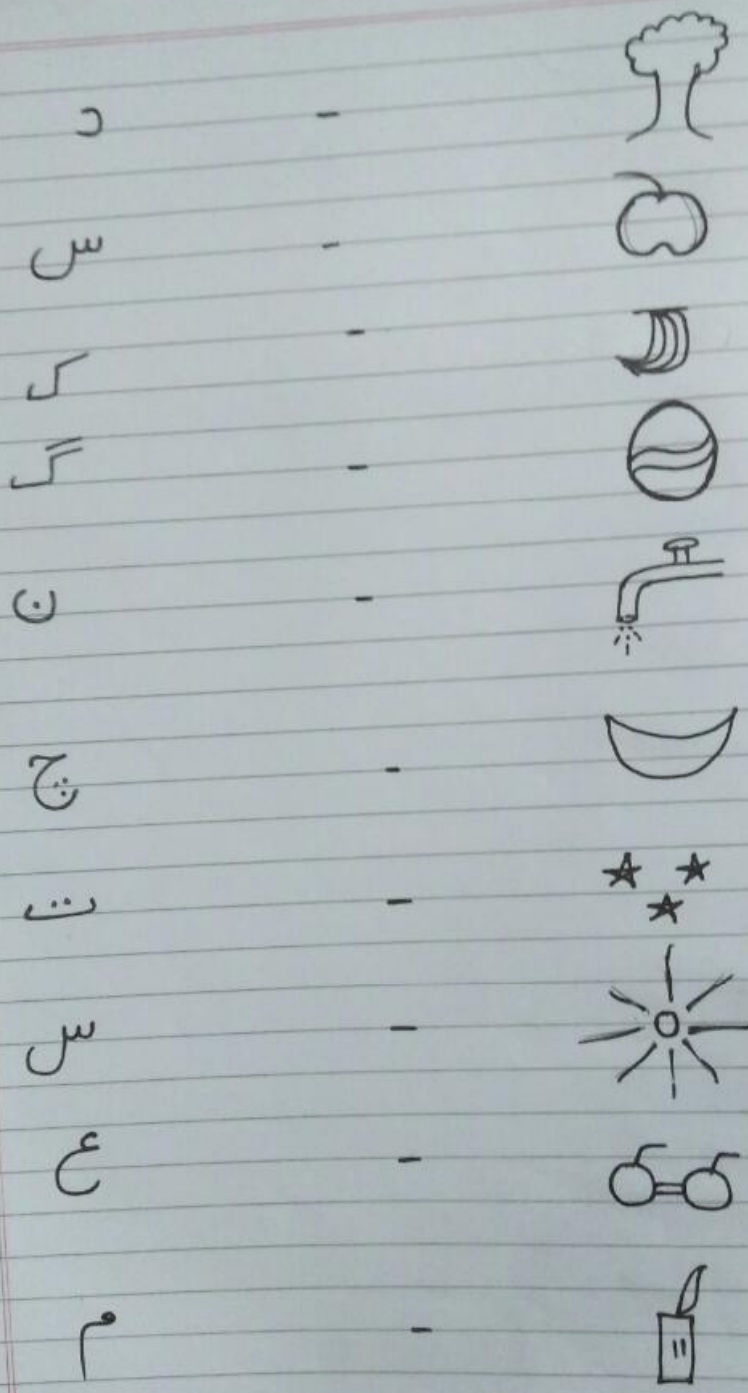 د -
س -
ک -
گ -
ن -
چ -
ت -
س -
ع -
م -